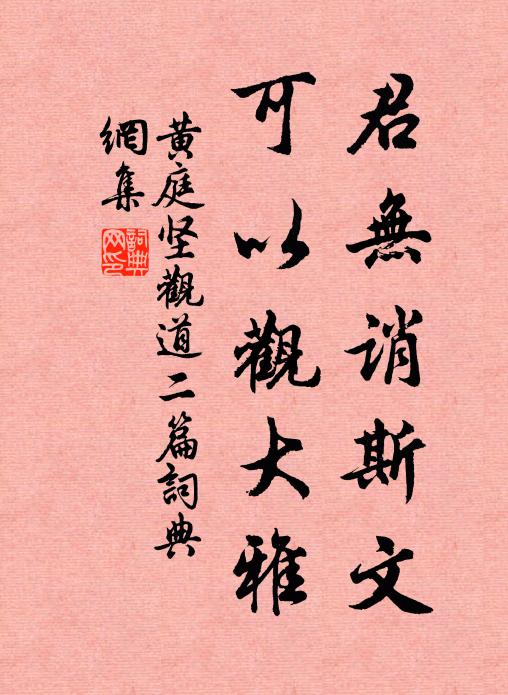 君無誚斯文
可以觀大雅
黄庭坚觀道二篇詞典
網集
詞典网印